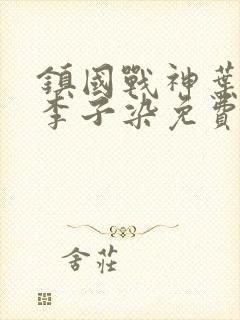 鎮國戰神葉
李子染免費
舍莊